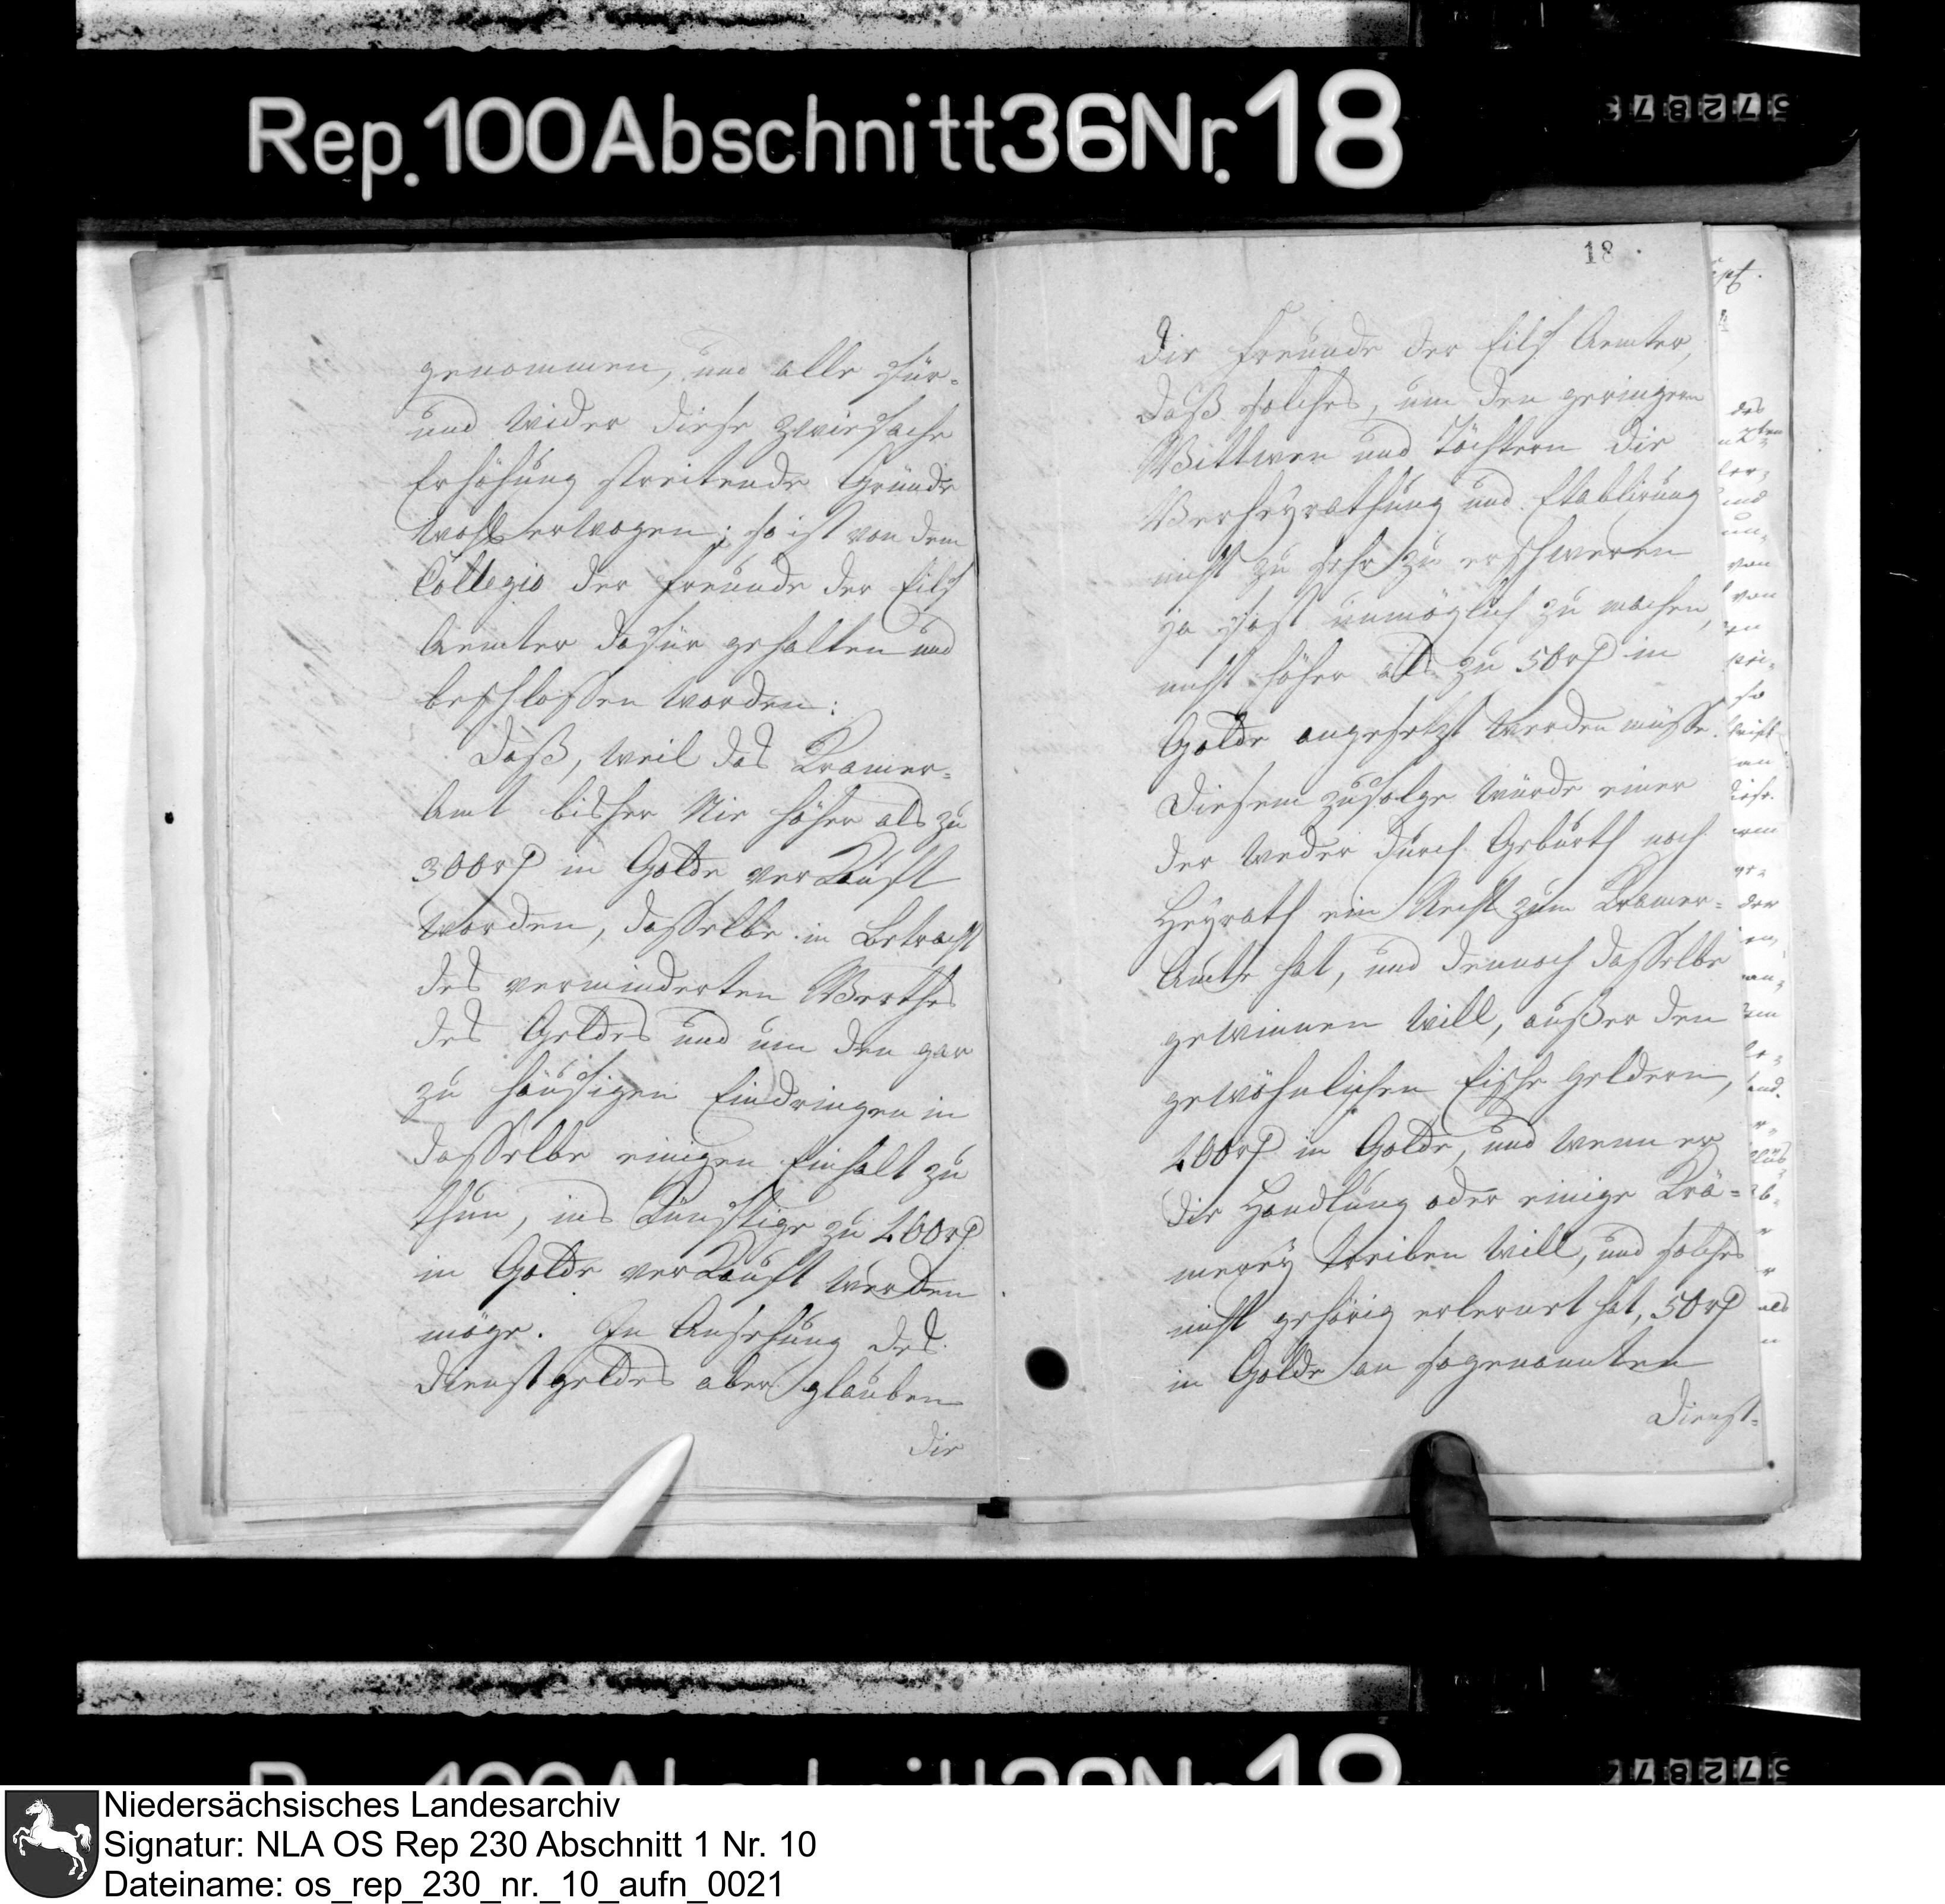 Rep. 100 Abschnitt 36 Nr. 18
genommen, und alle für-
und wider diese zwiefache
Erhöhung streitende Gründe
wohl erwogen; so ist von dem
Collegio der Freunde der Eilf
Aemter dafür gehalten und
beschlossen worden:
Daß, weil das Kramer-
Amt bisher nie höher als zu
300 rt in Golde verkauft
worden, dasselbe in Betracht
des verminderten Werthes
des Geldes und um den gar
zu häufigen Eindringen in
dasselbe einigen Einhalt zu
thun, ins Künftige zu 400 rt
in Golde verkauft werden
möge. In Ansehung des
Dienstgeldes aber glauben
die
18
die Freunde der Eilf Aemter,
daß solches, um den geringern
Wittwen und Töchtern die
Verheyrathung und Etablirung
nicht zu sehr zu erschweren
ja fast unmöglich zu machen,
nicht höher als zu 50 rt in
Golde angesetzt werden müsse.
Diesem zufolge würde einer
der weder durch Geburth noch
Heyrath ein Recht zum Kramer-
Amte hat, und dennoch dasselbe
gewinnen will, außer den
gewöhnlichen Eische Geldern,
400 rt in Golde, und wenn er
die Handlung oder einige Krä-
merey treiben will, und solches
nicht gehörig erlernet hat, 50 rt
in Golde an sogenannten
Dienst-
Niedersächsisches Landesarchiv
Signatur: NLA OS Rep 230 Abschnitt 1 Nr. 10
Dateiname: os_rep_230_nr._10_aufn_0021